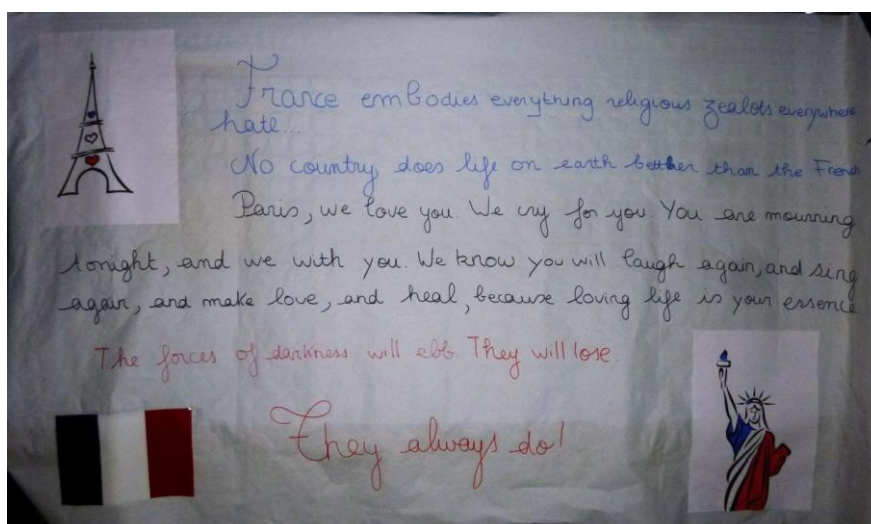 France embodies everything religious zealots everywhere
hate...
No country does life on earth better than the French
Paris, we love you. We cry for you. You are mourning
tonight, and we with you. We know you will laugh again, and sing
again, and make love, and heal, because loving life is your essence.
The forces of darkness will ebb. They will lose.
They always do!